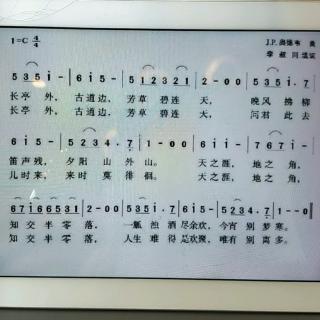 1=C 4/4
J.P. 奥德韦 曲
李叔同填词
5 3 5 i - | 6 i 5 - | 5 1 2 3 2 1 | 2 - 0 0 | 5 3 5 i . 7 |
长亭 外, 古道边, 芳草 碧连 天, 晚风 拂柳
长亭 外, 古道边, 芳草 碧连 天, 问君 此去
6 i 5 - | 5 2 3 4 . 7 | 1 - 0 0 | 6 i i - | 7 6 7 i - |
笛声残, 夕阳 山外山。 天之涯, 地之 角,
儿时来, 来时 莫徘徊。 天之涯, 地之 角,
6 7 i 6 6 5 3 1 | 2 - 0 0 | 5 3 5 i . 7 | 6 i 5 - | 5 2 3 4 . 7 | 1 - - 0 ‖
知交半零 落, 一瓢 浊酒 尽余欢, 今宵 别梦寒。
知交半零 落, 人生 难得 是欢聚, 唯有 别离多。